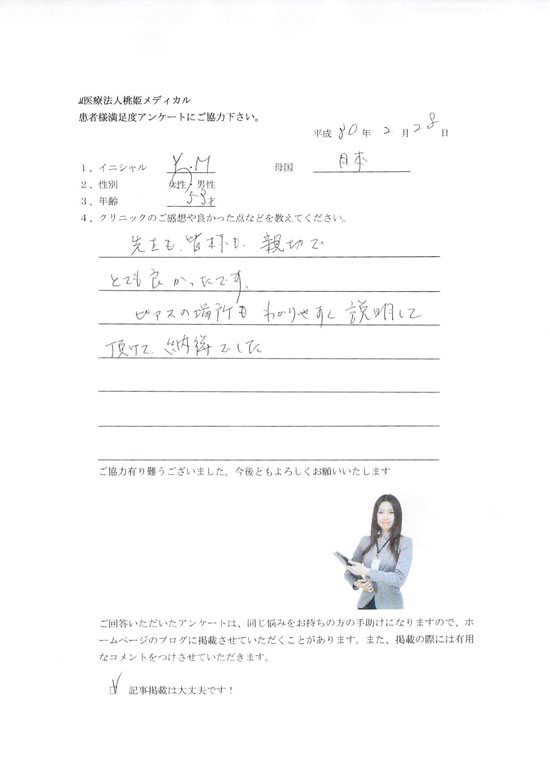 医療法人桃姫メディカル
患者様満足度アンケートにご協力下さい。
平成 30 年 2 月 28 日
1、イニシャル Y.M 母国 日本
2、性別 女性・男性
3、年齢 53才
4、クリニックのご感想や良かった点などを教えてください。
先生も、皆様も、親切で
とても良かったです。
ピアスの場所も わかりやすく 説明して
頂けて、納得でした
ご協力有り難うございました。今後ともよろしくお願いいたします
ご回答いただいたアンケートは、同じ悩みをお持ちの方の手助けになりますので、ホ
ームページのブログに掲載させていただくことがあります。また、掲載の際には有用
なコメントをつけさせていただきます。
記事掲載は大丈夫です！